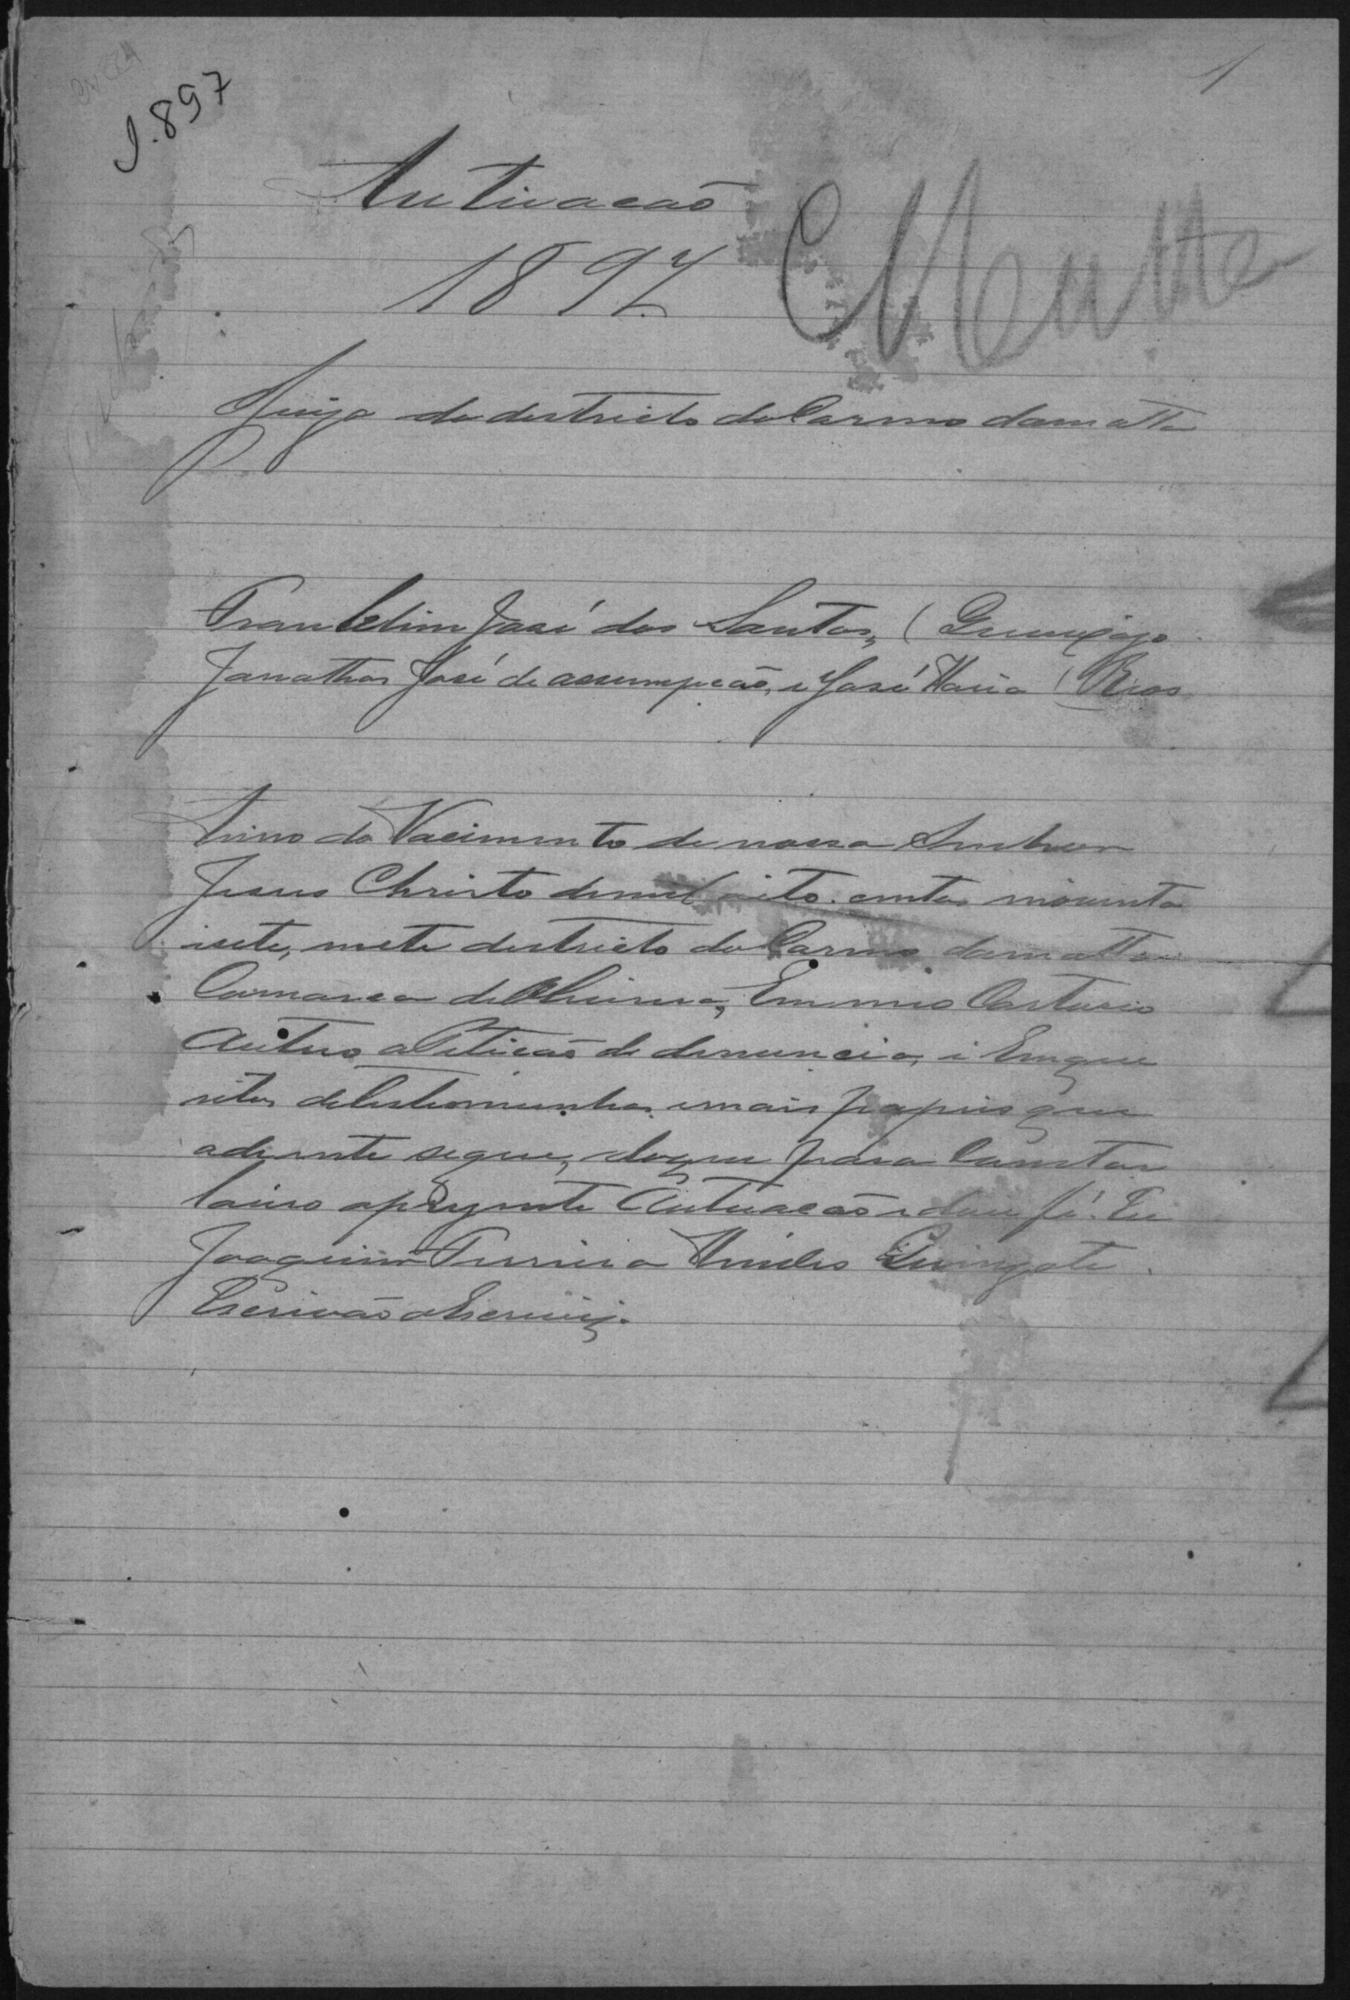 1
J. 897
Autuacão
1897
CMatta
Juizo do destricto do Carmo damatta
Franklim José dos Santos, (
Janathas José de assumpcão, e José Maria ( Reos
Anno do Nacimento de nosso Senhor
Jesus Christo demil oito centos inoventa
isete, neste destricto do Carmo damatta
Comarca de Oliveira, Em meo Cartorio
Autuo a Peticão de denuncia, i Emque
ritos detestemunhas emais papeis que
adiente segue, doque para Constar
lavro apresente Autuacão e dou fé. Eu
Joaquim Ferreira
Escrivão o Escrivi.